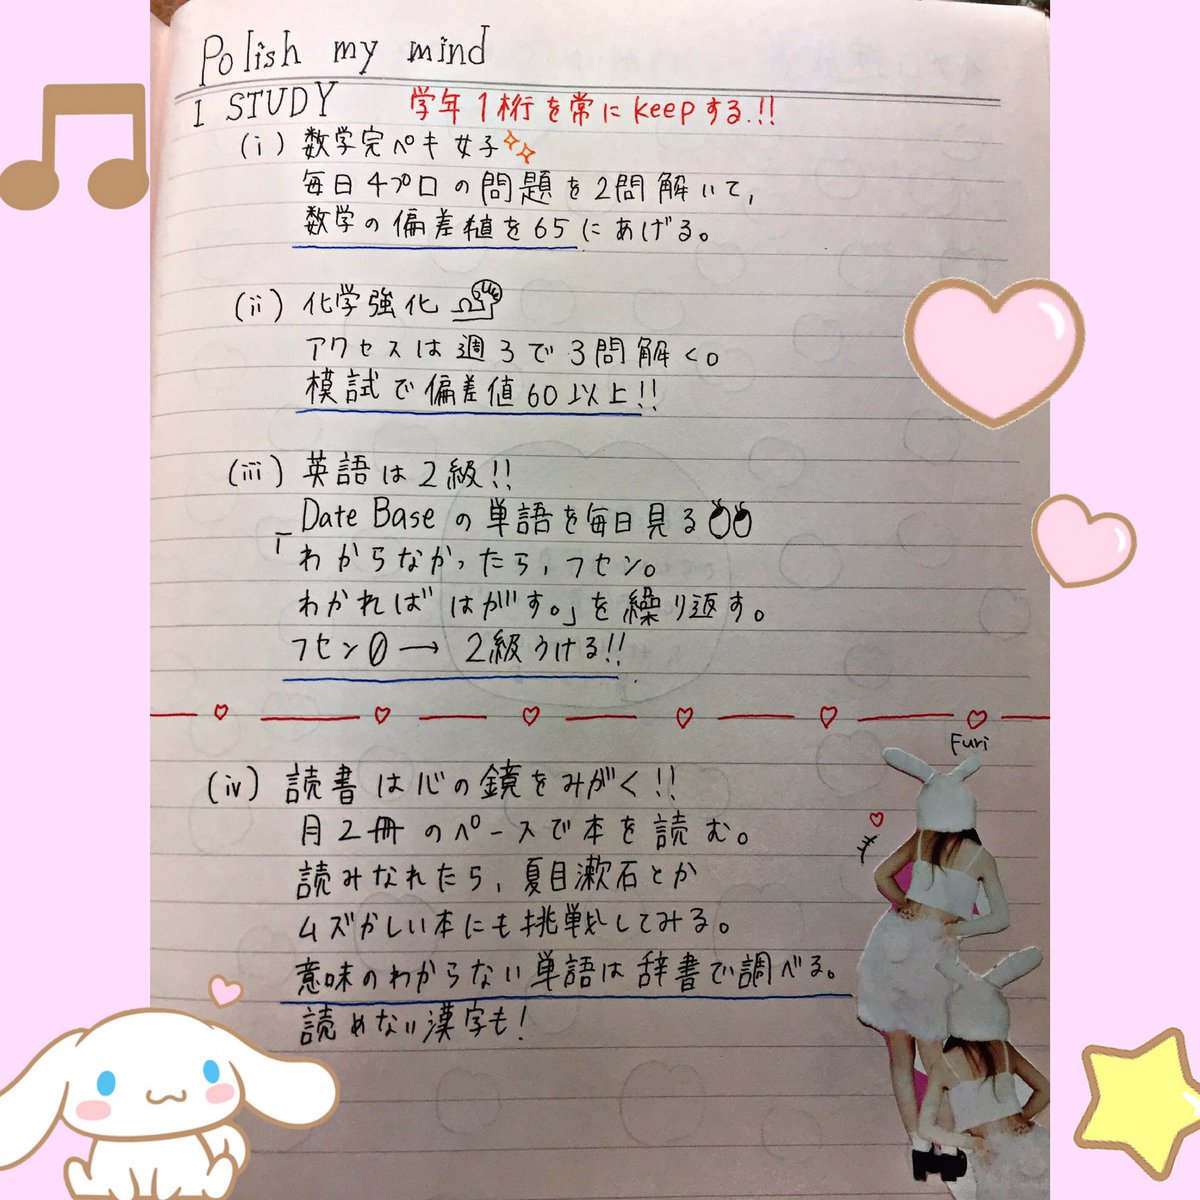 Polish my mind
I STUDY 学年1桁を常にkeepする.!!
(i) 数学完ペキ女子
毎日4プロの問題を2問解いて,
数学の偏差値を65にあげる。
(ii) 化学強化
アクセスは週3で3問解く。
模試で偏差値60以上!!
(iii) 英語は2級!!
Date Baseの単語を毎日見る
「わからなかったら,フセン。
わかれば はがす。」を繰り返す。
フセン0→2級うける!!
Furi
(iv) 読書は心の鏡をみがく!!
月2冊のペースで本を読む。
読みなれたら,夏目漱石とか
ムズかしい本にも挑戦してみる。
意味のわからない単語は辞書で調べる。
読めない漢字も!